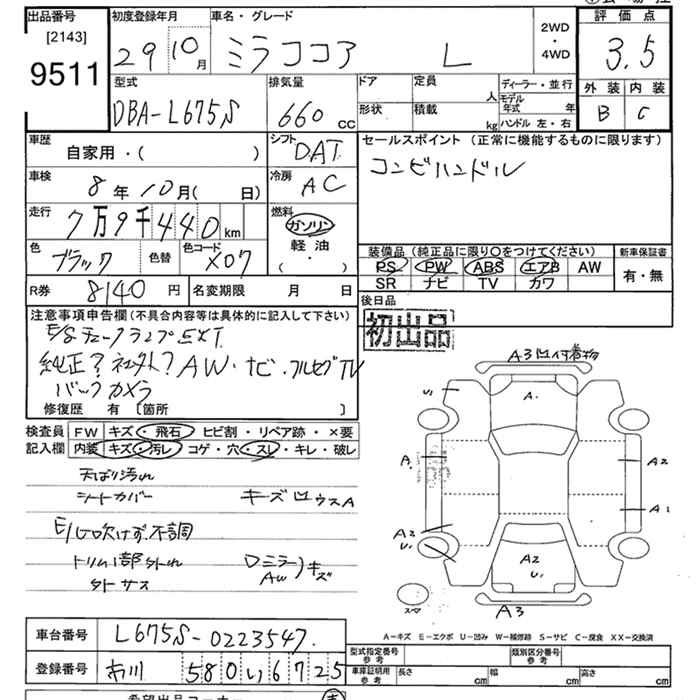 出品番号 初度登録年月 車名・グレード 2WD・4WD 評価点
[2143] 9511 29 10月 ミラココア L 3.5
型式 排気量 ドア 定員 人 ディーラー・並行 外装 内装
DBA-L675S 660 CC 形状 積載 kg モデル年式 年 ハンドル 左・右 B C
車歴 自家用・( ) シフト DAT セールスポイント (正常に機能するものに限ります)
車検 8年10月( 日) 冷房 AC コンビハンドル
走行 7万9千440km 燃料 ガソリン 軽油 ( ・ )
色 ブラック 色替 色コード X07
装備品 (純正品に限り○をつけてください) 新車保証書
PS PW ABS エアB AW 有・無
SR ナビ TV カワ
R券 8140円 名変期限 月 日 後日品
注意事項申告欄 (不具合内容等は具体的に記入して下さい) 初出品
E/Gチェックランプ
純正?社外?AW・ナビ・フルセグTV
バックカメラ
修復歴 有 [箇所 ]
検査員記入欄 FW キズ・飛石 ヒビ割・リペア跡・×要
内装 キズ・汚レ コゲ・穴・スレ・キレ・破レ
天ばり汚れ
シートカバー キーズ
E/G吹けず.不調
トリム1部外れ Dミラー AW キズ
外 サス
A3凹付着物
U1 A.
A. A2
A1
A2 U. A2 U.
スマ A3
A-キズ E-エクボ U-凹み W-補修跡 S-サビ C-腐食 XX-交換済
車台番号 L675S-0223547.
型式指定番号 参考 類別区分番号 参考
登録番号 市川 580 い 6725
車庫証明用 参考 長さ cm 幅 cm 高さ cm